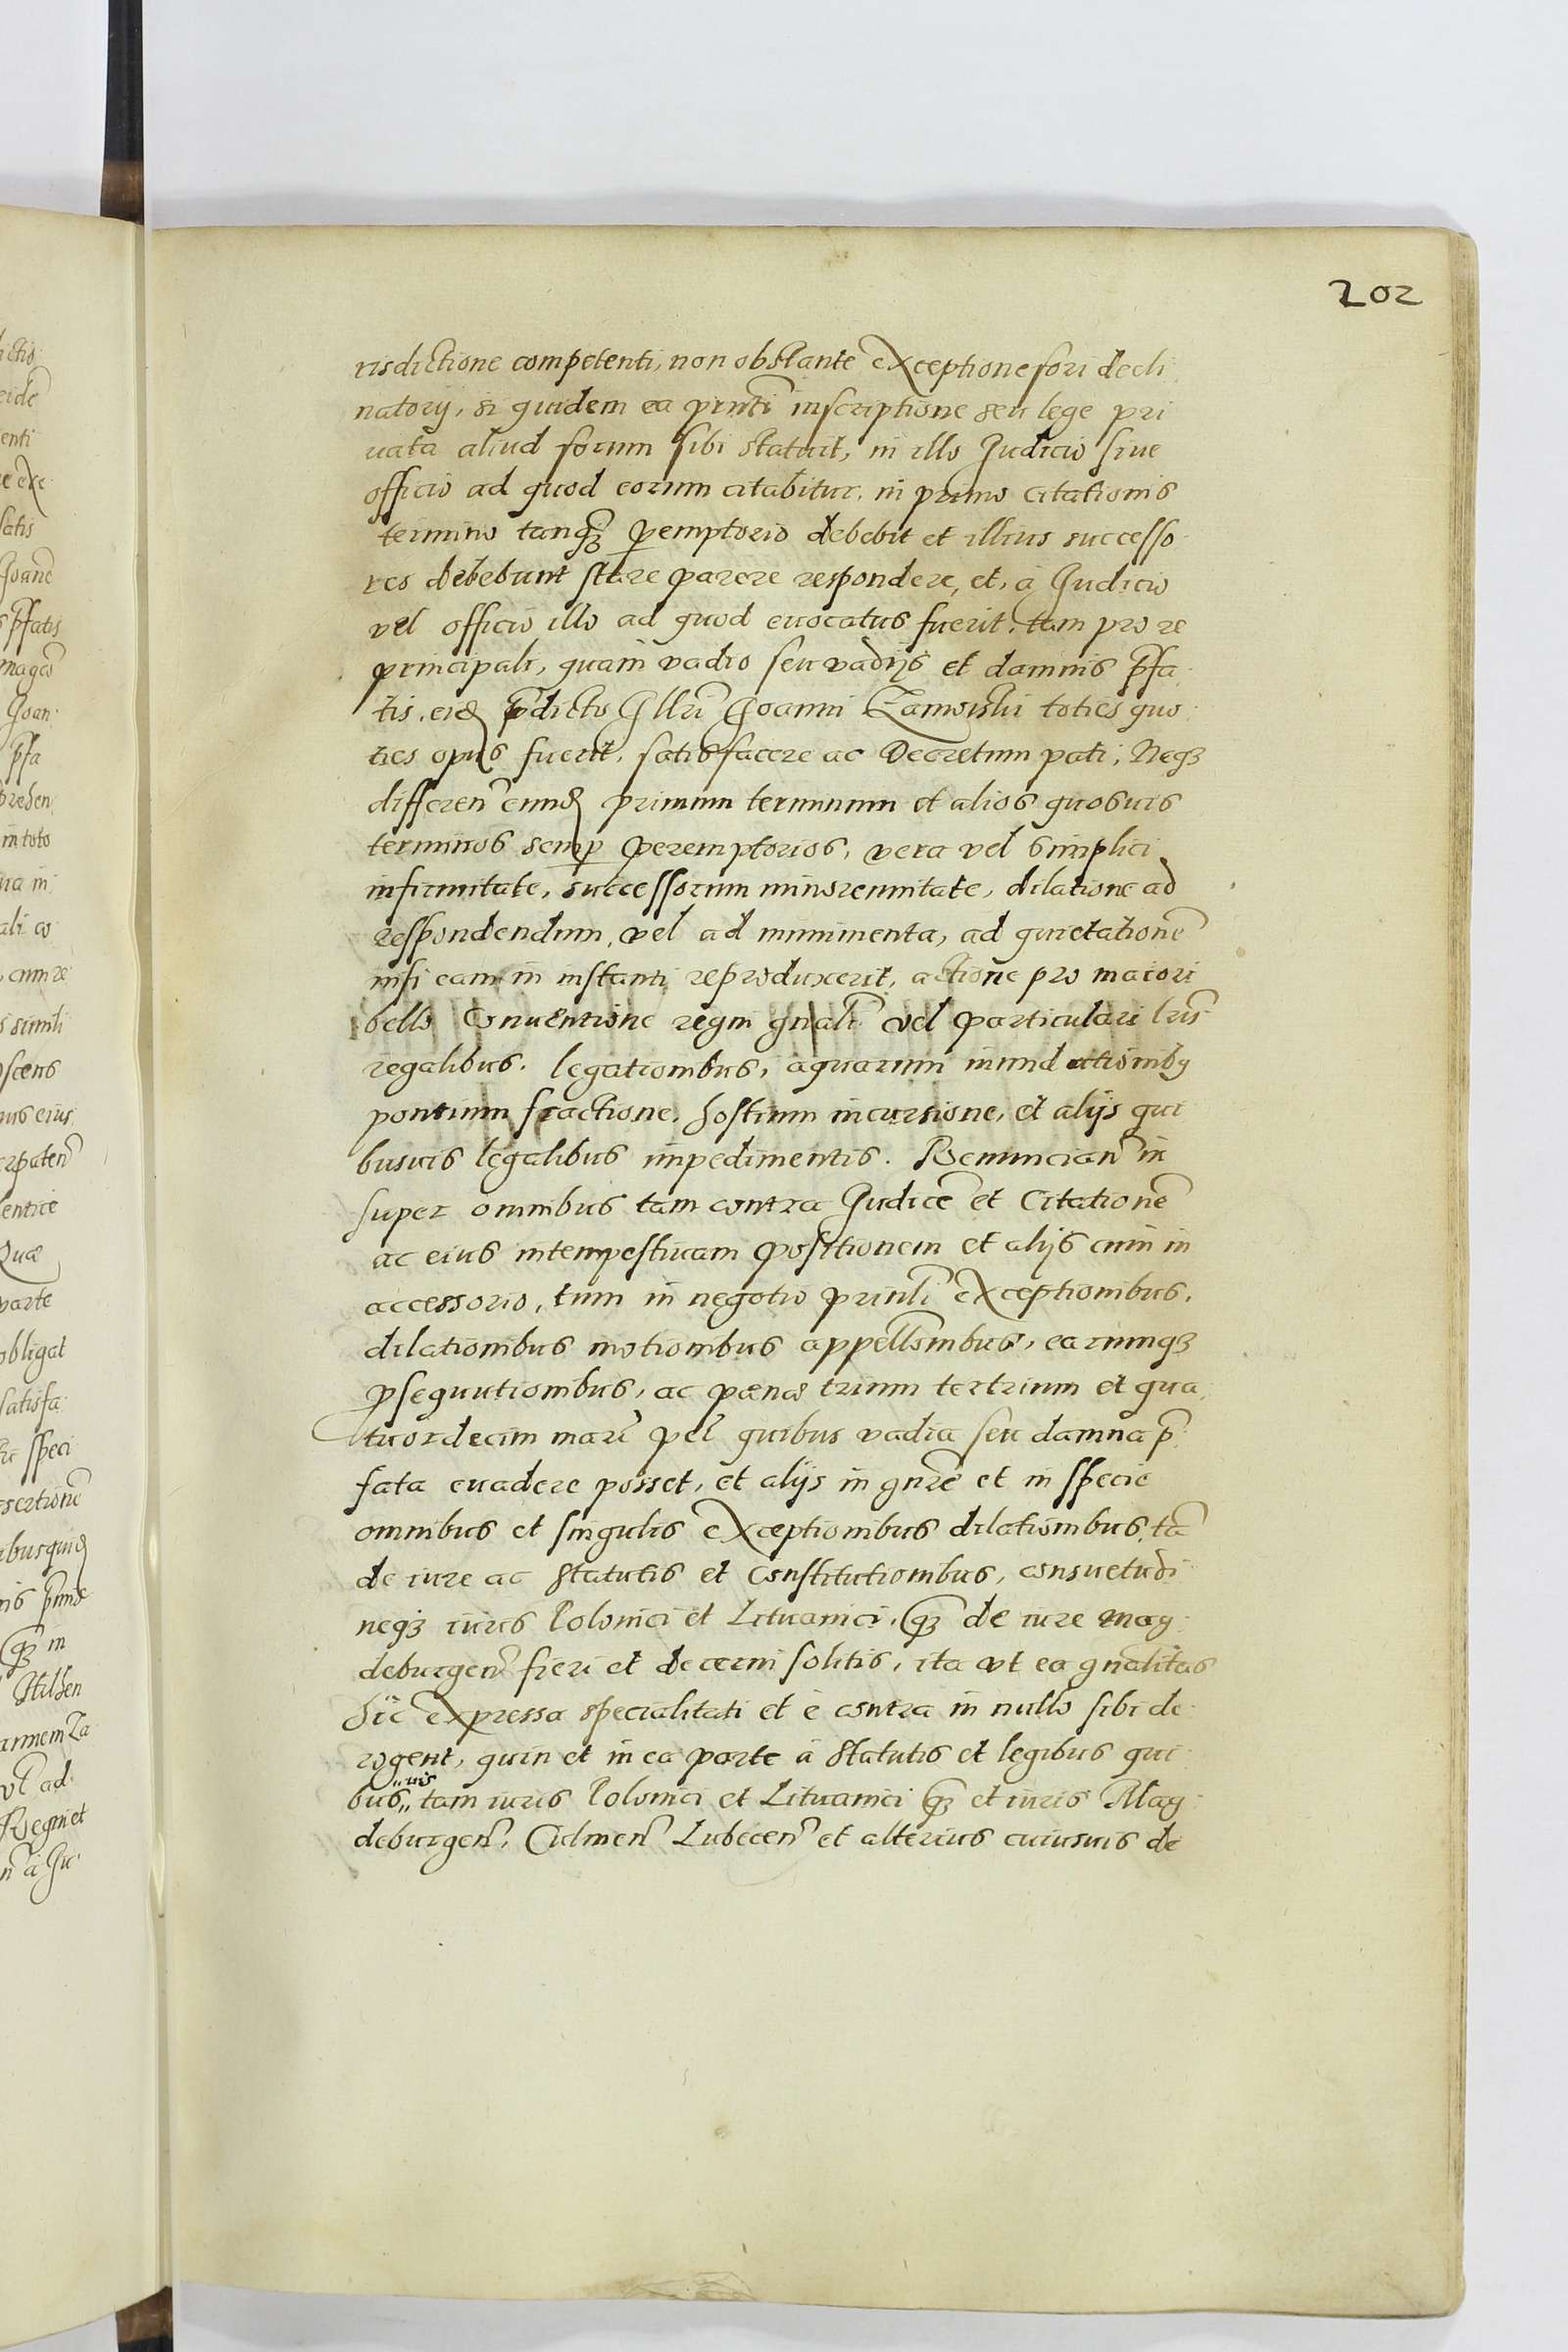 202
risdictione competenti, non obstante exceptione fori decli
natorij, si quidem ea pnti inscriptione seu lege pri
uata aliud forum sibi statuit, in illo Judicio siue
officio ad quod eorum citabitur. in primo citationis
termino tanqȝ peremptorio debebit et illius successo
res debebunt stare parere respondere, et, à Judicio
vel officio illo ad quod euocatus fuerit, tam pro re
principali, quam vadio seu vadijs et damnis pfa
tis. eidem pdicto Illri Joanni Zamoiskii toties quo
ties opus fuerit, satisfacere ac Decretum pati, Neqȝ
differen eund primum terminum et alios quosuis
terminos semp peremptorios, vera vel simplici
infirmitate, successorum minorennitate, dilatione ad
respondendum, vel ad munimenta, ad quietatione
nisi eam in instanti reproduxerit, actione pro maiori
bello Conuentione regni gnali vel particulari lris
regalibus. legationibus, aquarum inundationibȝ
pontium fractione, hostium incursione, et alijs qui
busuis legalibus impedimentis. Renuncian in
super omnibus tam contra Judice et Citatione
ac eius intempestiuam positionem et alijs cum in
accessorio, tum in negotio prinli exceptionibus,
dilationibus motionibus appellonibus, earumqȝ
psequutionibus, ac pœnæ trium tertrium et qua
tuordecim mar pel quibus vadia seu damna p
fata euadere posset, et alijs in gnre et in specie
omnibus et singulis exceptionibus dilationibus, ta
de iure ac statutis et Constitutionibus, consuetudi
neqȝ iuris Polonici et Lituanici, qȝ de iure mag
deburgen fieri et decerni solitis, ita vt ea gnalitas
hic expressa specialitati et è contra in nullo sibi de
rogent, quin et in ea parte à statutis et legibus qui
bus uis tam iuris Polonici et Lituanici qȝ et iuris Mag
deburgen, Culmen Lubecen et alterius cuiusuis de